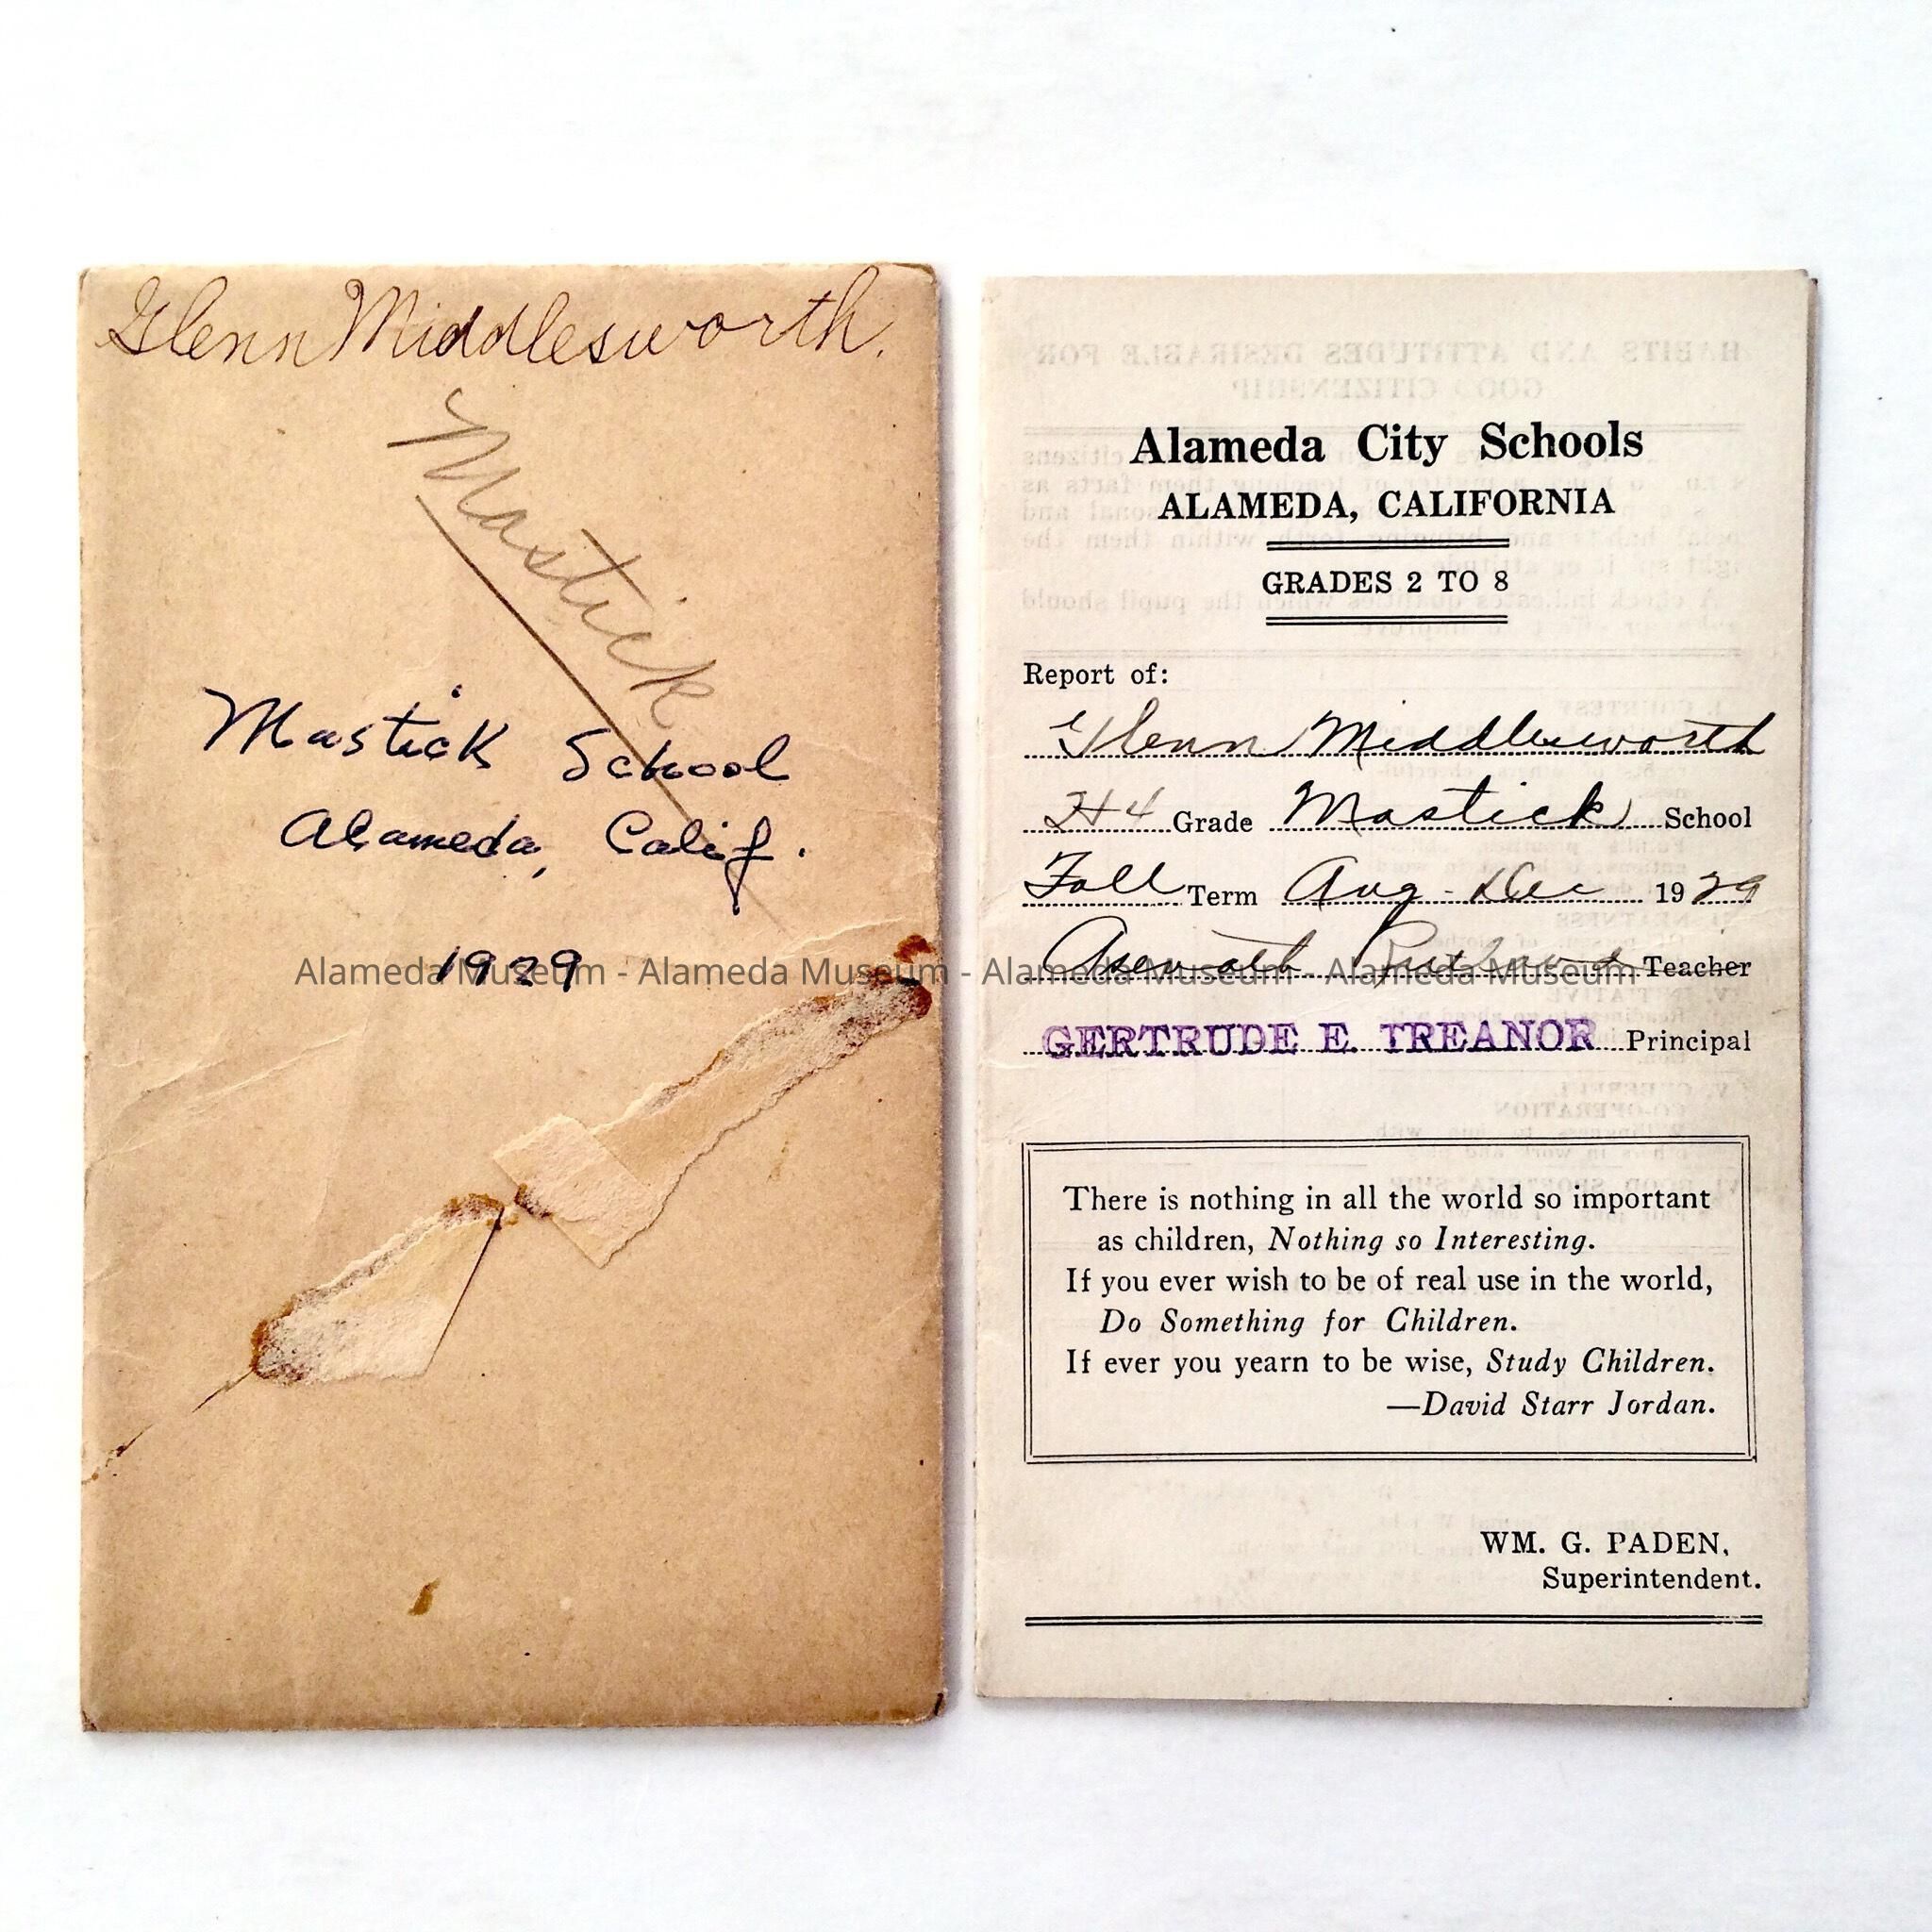 Glenn Middlesworth.
Mastick
Mastick School
Alameda, Calif.
1929
Alameda Museum - Alameda Museum - Alameda Museum - Alameda Museum
HABITS AND ATTITUDES DESIRABLE FOR
GOOD CITIZENSHIP
Alameda City Schools
ALAMEDA, CALIFORNIA
GRADES 2 TO 8
Report of:
Glenn Middlesworth
H4 Grade Mastick School
Fall Term Aug - Dec 1929
Teacher
GERTRUDE E. TREANOR Principal
There is nothing in all the world so important
as children, Nothing so Interesting.
If you ever wish to be of real use in the world,
Do Something for Children.
If ever you yearn to be wise, Study Children.
—David Starr Jordan.
WM. G. PADEN,
Superintendent.